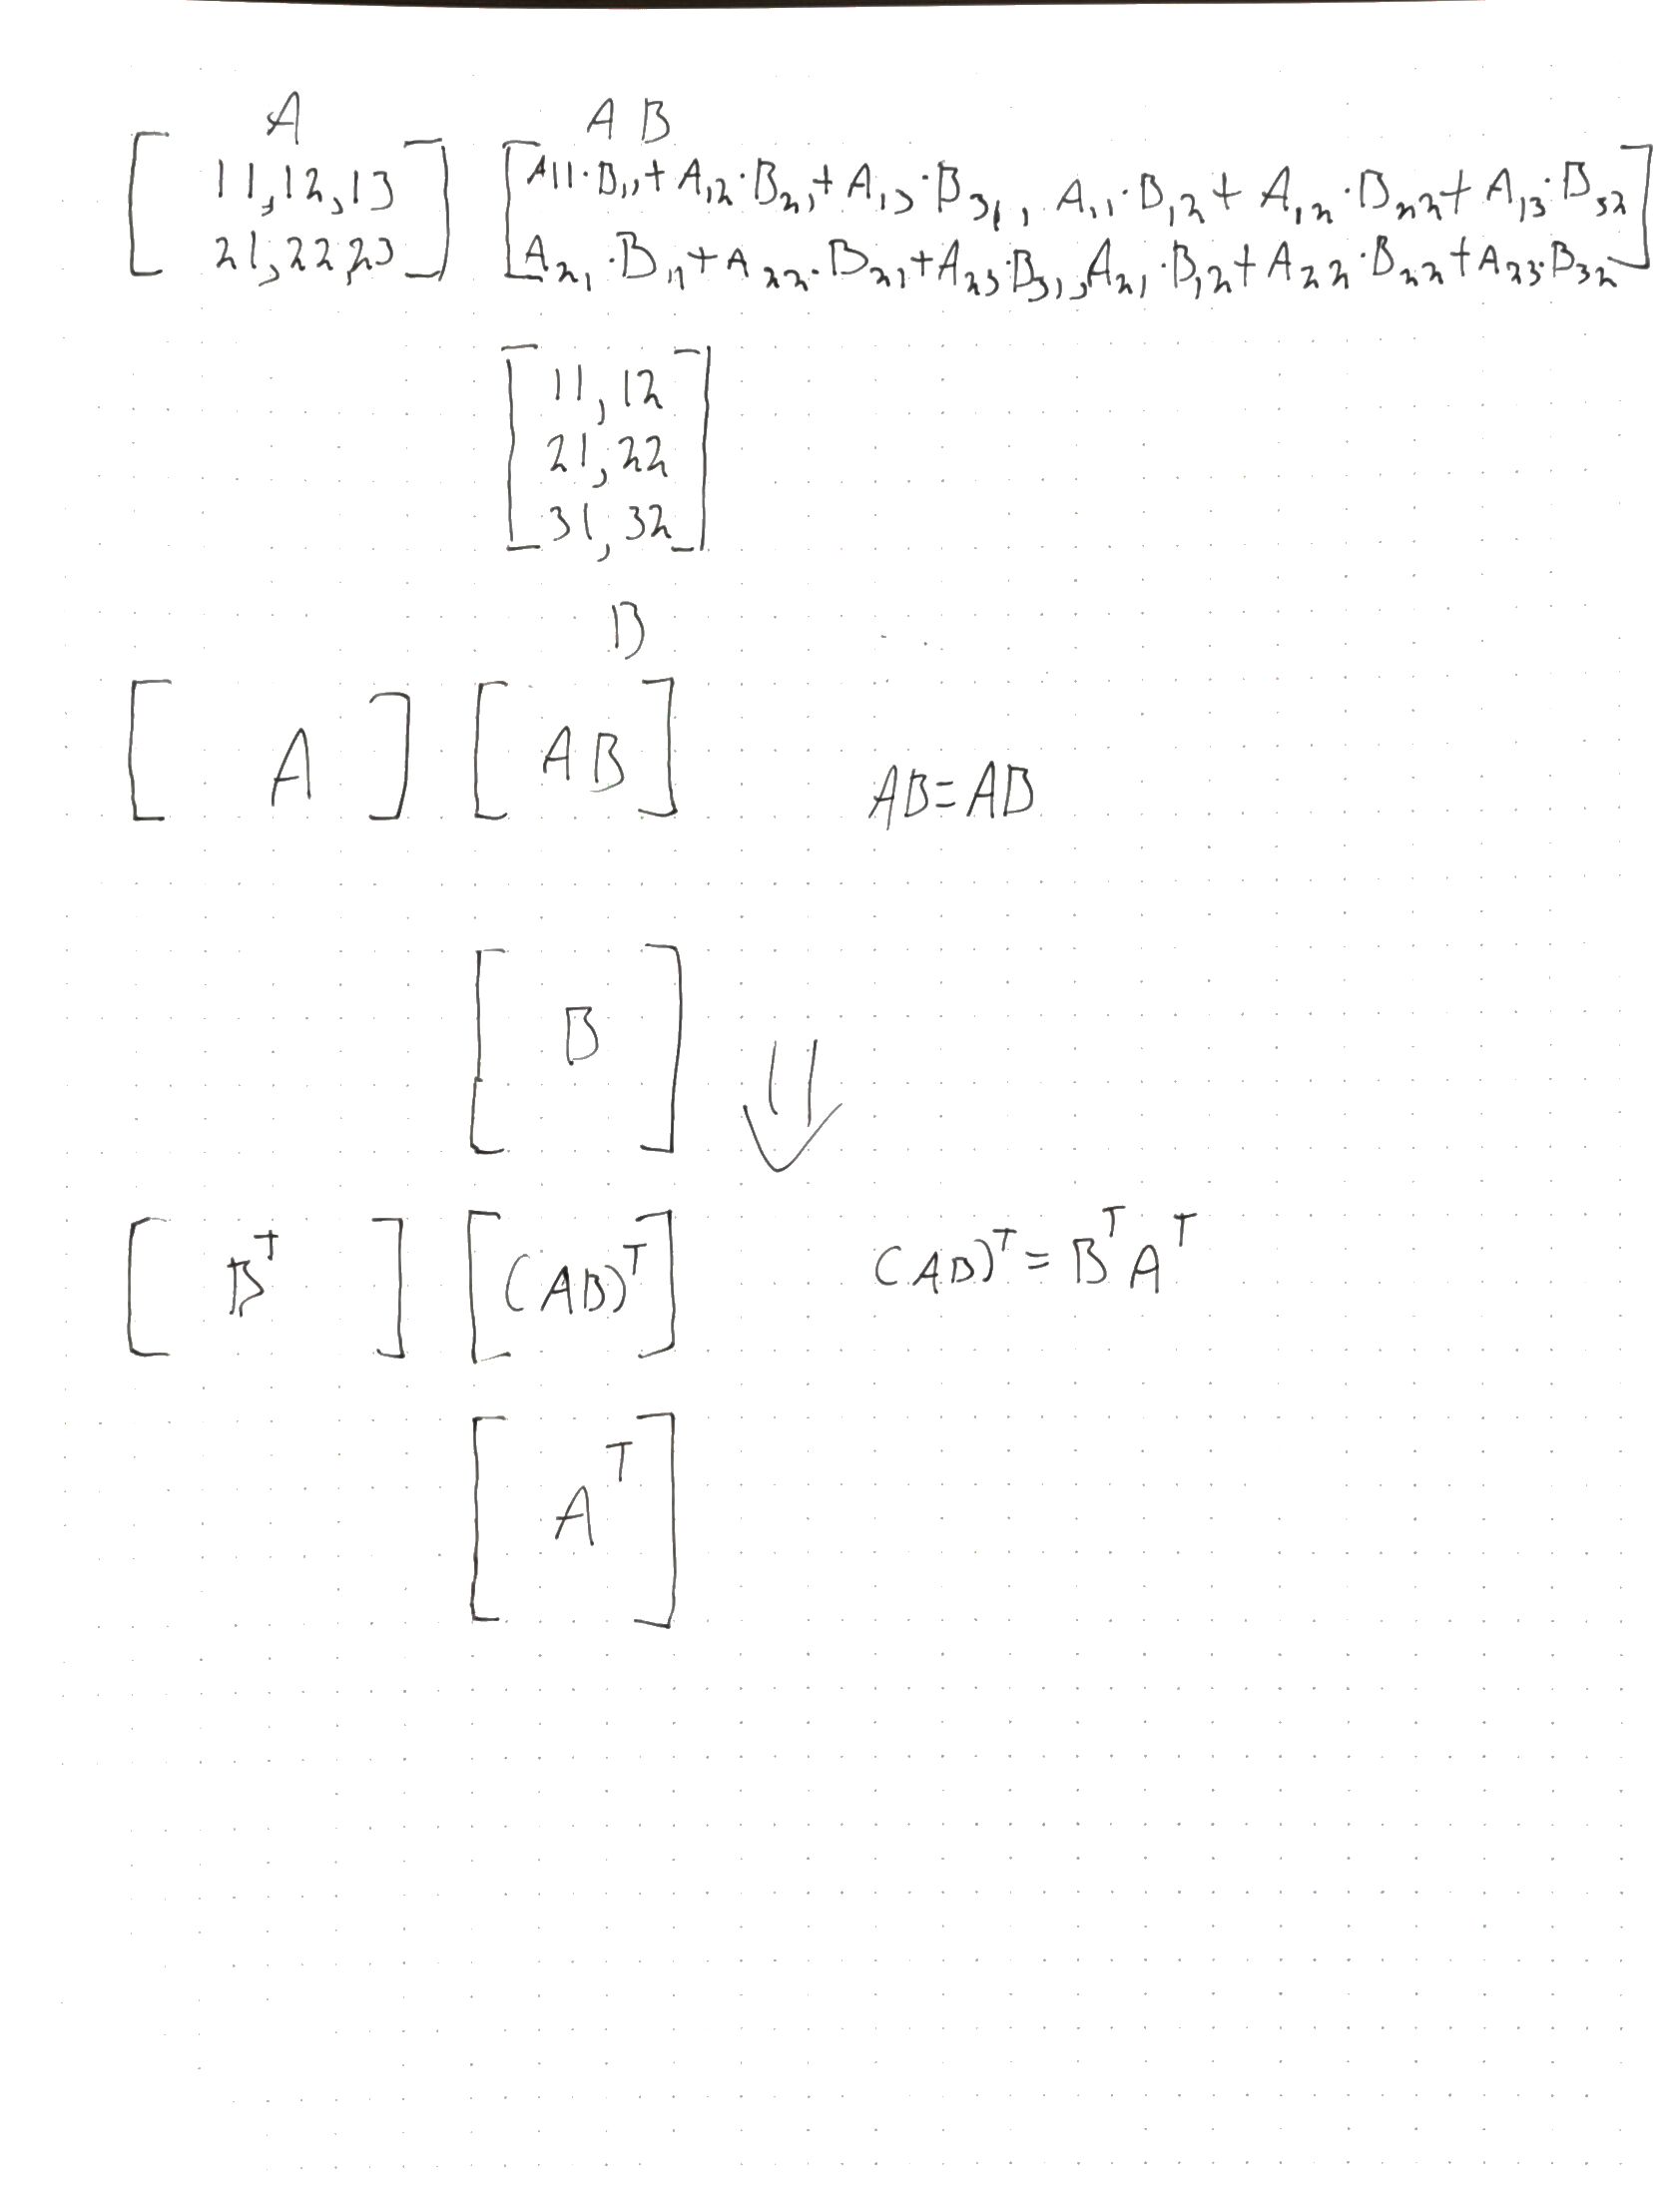 A AB
[11,12,13] [A11·B11+A12·B21+A13·B31, A11·B12+A12·B22+A13·B32]
[21,22,23] [A21·B11+A22·B21+A23·B31, A21·B12+A22·B22+A23·B32]
[11,12]
[21,22]
[31,32]
B
[A] [AB] AB=AB
[B] ⇓
[Bᵀ] [(AB)ᵀ] (AB)ᵀ=BᵀAᵀ
[Aᵀ]